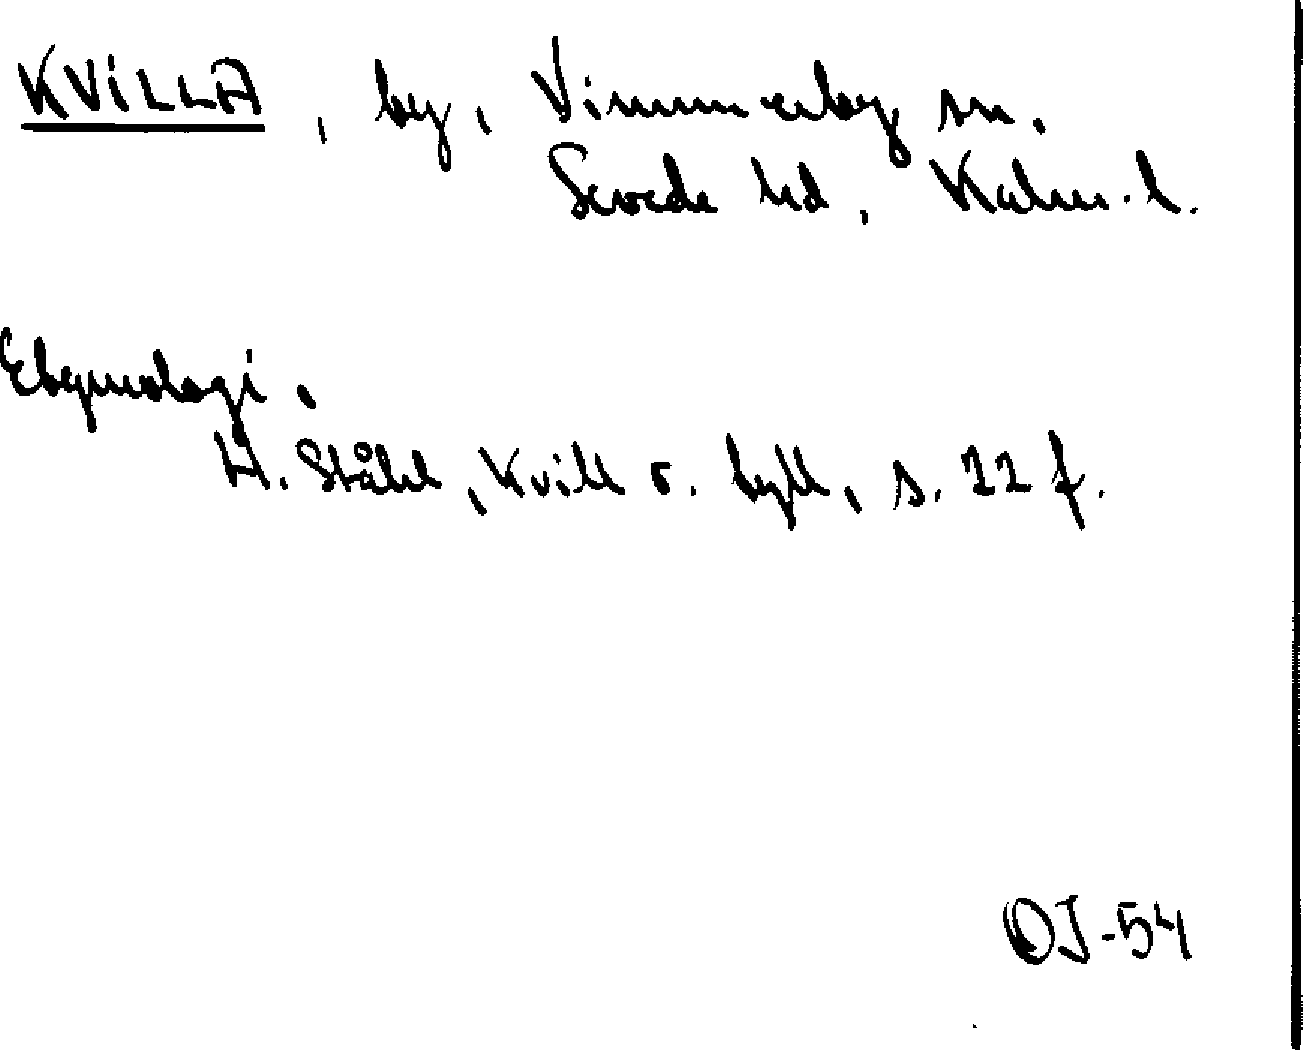 KVILLA, by, Vimmerby sn.
Sevede hd, Kalm. l.
Etymologi.
H. Ståhl, Kvill o. tyll, s. 22 f.
OJ-54